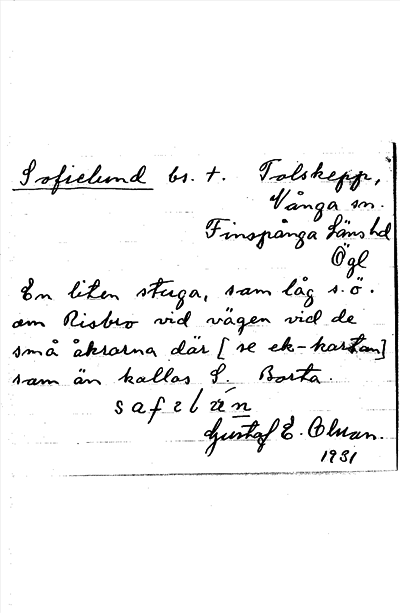 Sofielund bs. t. Tolskepp,
Vånga sn.
Finspånga läns hd
Ögl
En liten stuga, som låg s.ö.
om Risbro vid vägen vid de
små åkrarna där [se ek-kartan]
som än kallas S. Borta.
Gustaf E. Olsson.
1931